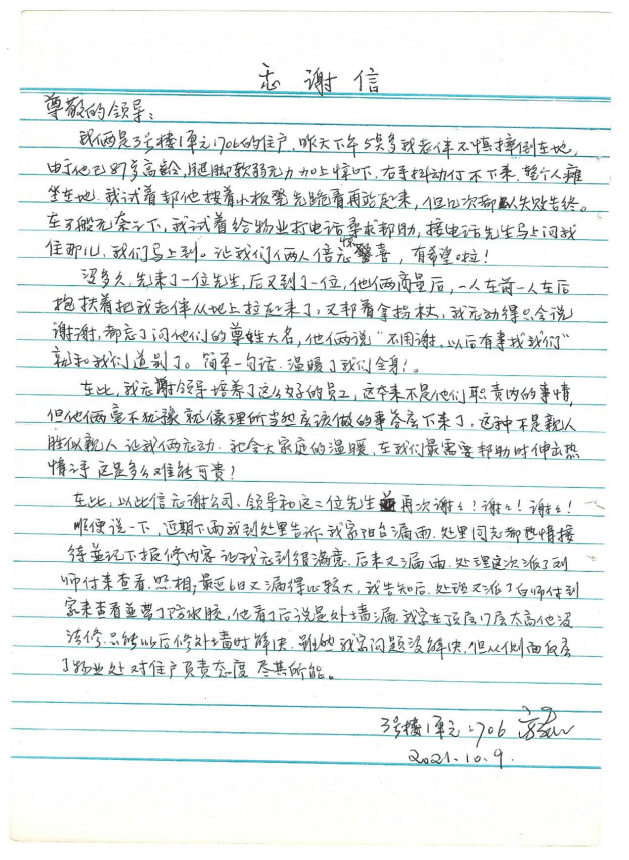 感谢信
尊敬的领导：
我俩是3号楼1单元1706的住户，昨天下午5点多我老伴不慎摔倒在地，
由于他已87岁高龄，腿脚软弱无力加上惊吓，右手抖动仃不下来，整个人瘫
坐在地。我试着帮他按着小板凳先跪着再站起来，但几次都以失败告终。
在万般无奈之下，我试着给物业打电话寻求帮助，接电话先生马上问我
住那儿，我们马上到。让我们俩人倍感惊喜，有希望啦！
没多久，先来了一位先生，后又到了一位，他俩商量后，一人在前一人在后
抱扶着把我老伴从地上拉起来了，又帮着拿拐杖，我感动得只会说
谢谢，都忘了问他们的尊姓大名，他俩说“不用谢，以后有事找我们”
就和我们道别了。简单一句话，温暖了我们全身！。
在此，我感谢领导培养了这么好的员工，这本来不是他们职责内的事情，
但他俩毫不犹豫就像理所当然应该做的事答应下来了，这种不是亲人
胜似亲人让我俩感动。社会大家庭的温暖，在我们最需要帮助时伸出热
情之手这是多么难能可贵！
在此，以此信感谢公司、领导和这二位先生再次谢谢！谢谢！谢谢！
顺便说一下，近期下雨我到处里告诉我家阳台漏雨，处里同志都热情接
待並记下报修内容让我感到很满意。后来又漏雨，处理这次派了刘
师付来查看、照相；最近6日又漏得比较大，我告知后，处理又派了白师付到
家来查看並带了防水胶，他看了后说是外墙漏，我家在顶层17层太高他没
法修，只能以后修外墙时解决。虽然我家问题没解决，但从侧面反应
了物业处对住户负责态度，尽其所能。
3号楼1单元1706
2021.10.9.